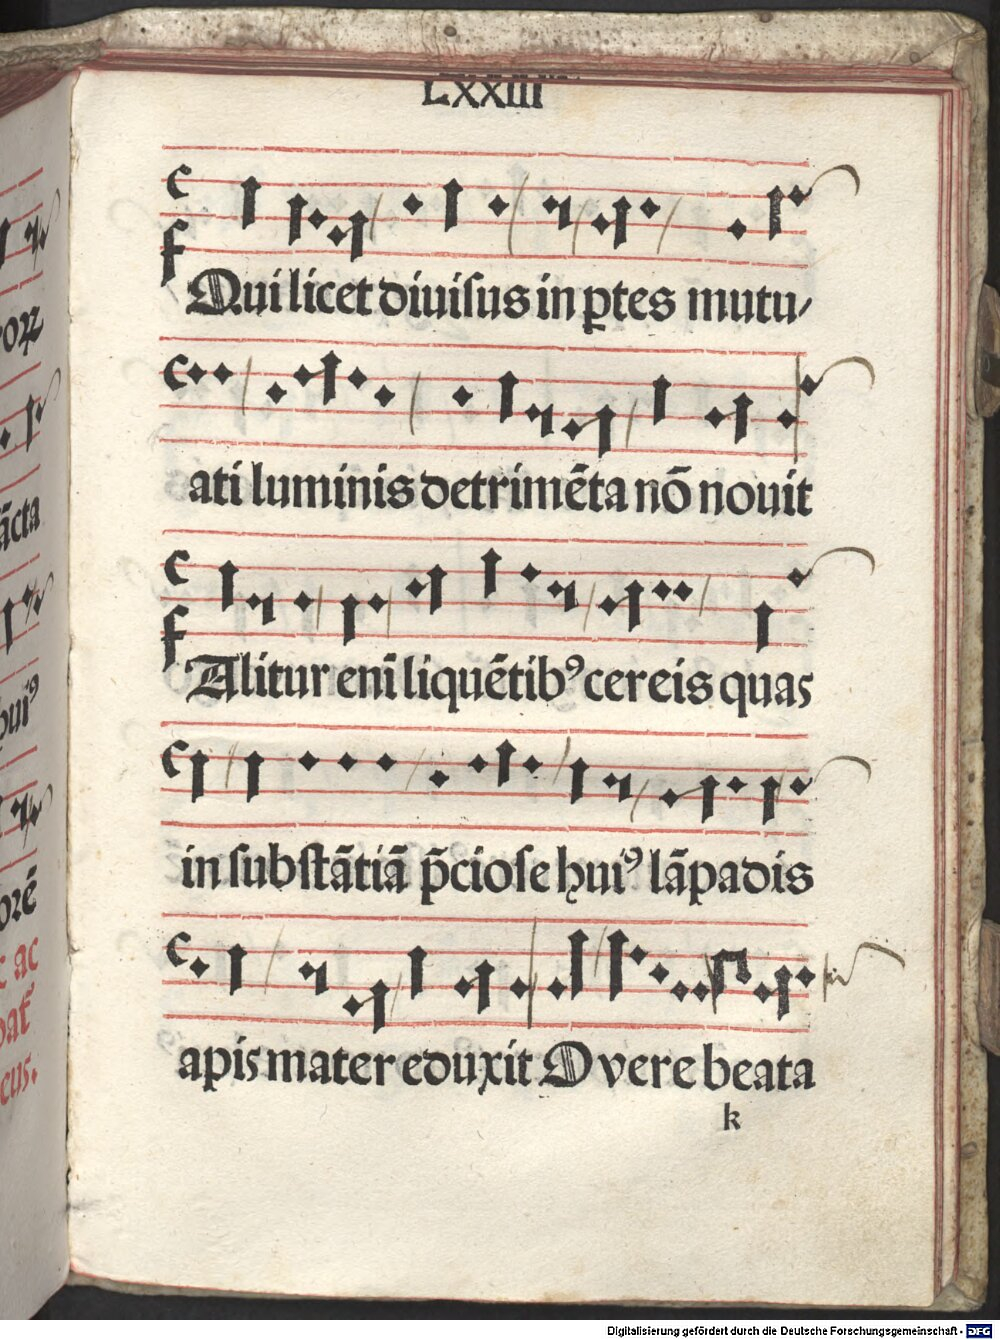 LXXIIII
Qui licet diuiſus in ꝑtes mutu/
ati luminis detrimēta nō nouit
Alitur enī liquētibꝰ cereis quas
in ſubſtātiā p̄cioſe huiꝰ lāpadis
apis mater eduxit O vere beata
k
ācta
huiꝰ
orē
ac
Digitalisierung gefördert durch die Deutsche Forschungsgemeinschaft - DFG